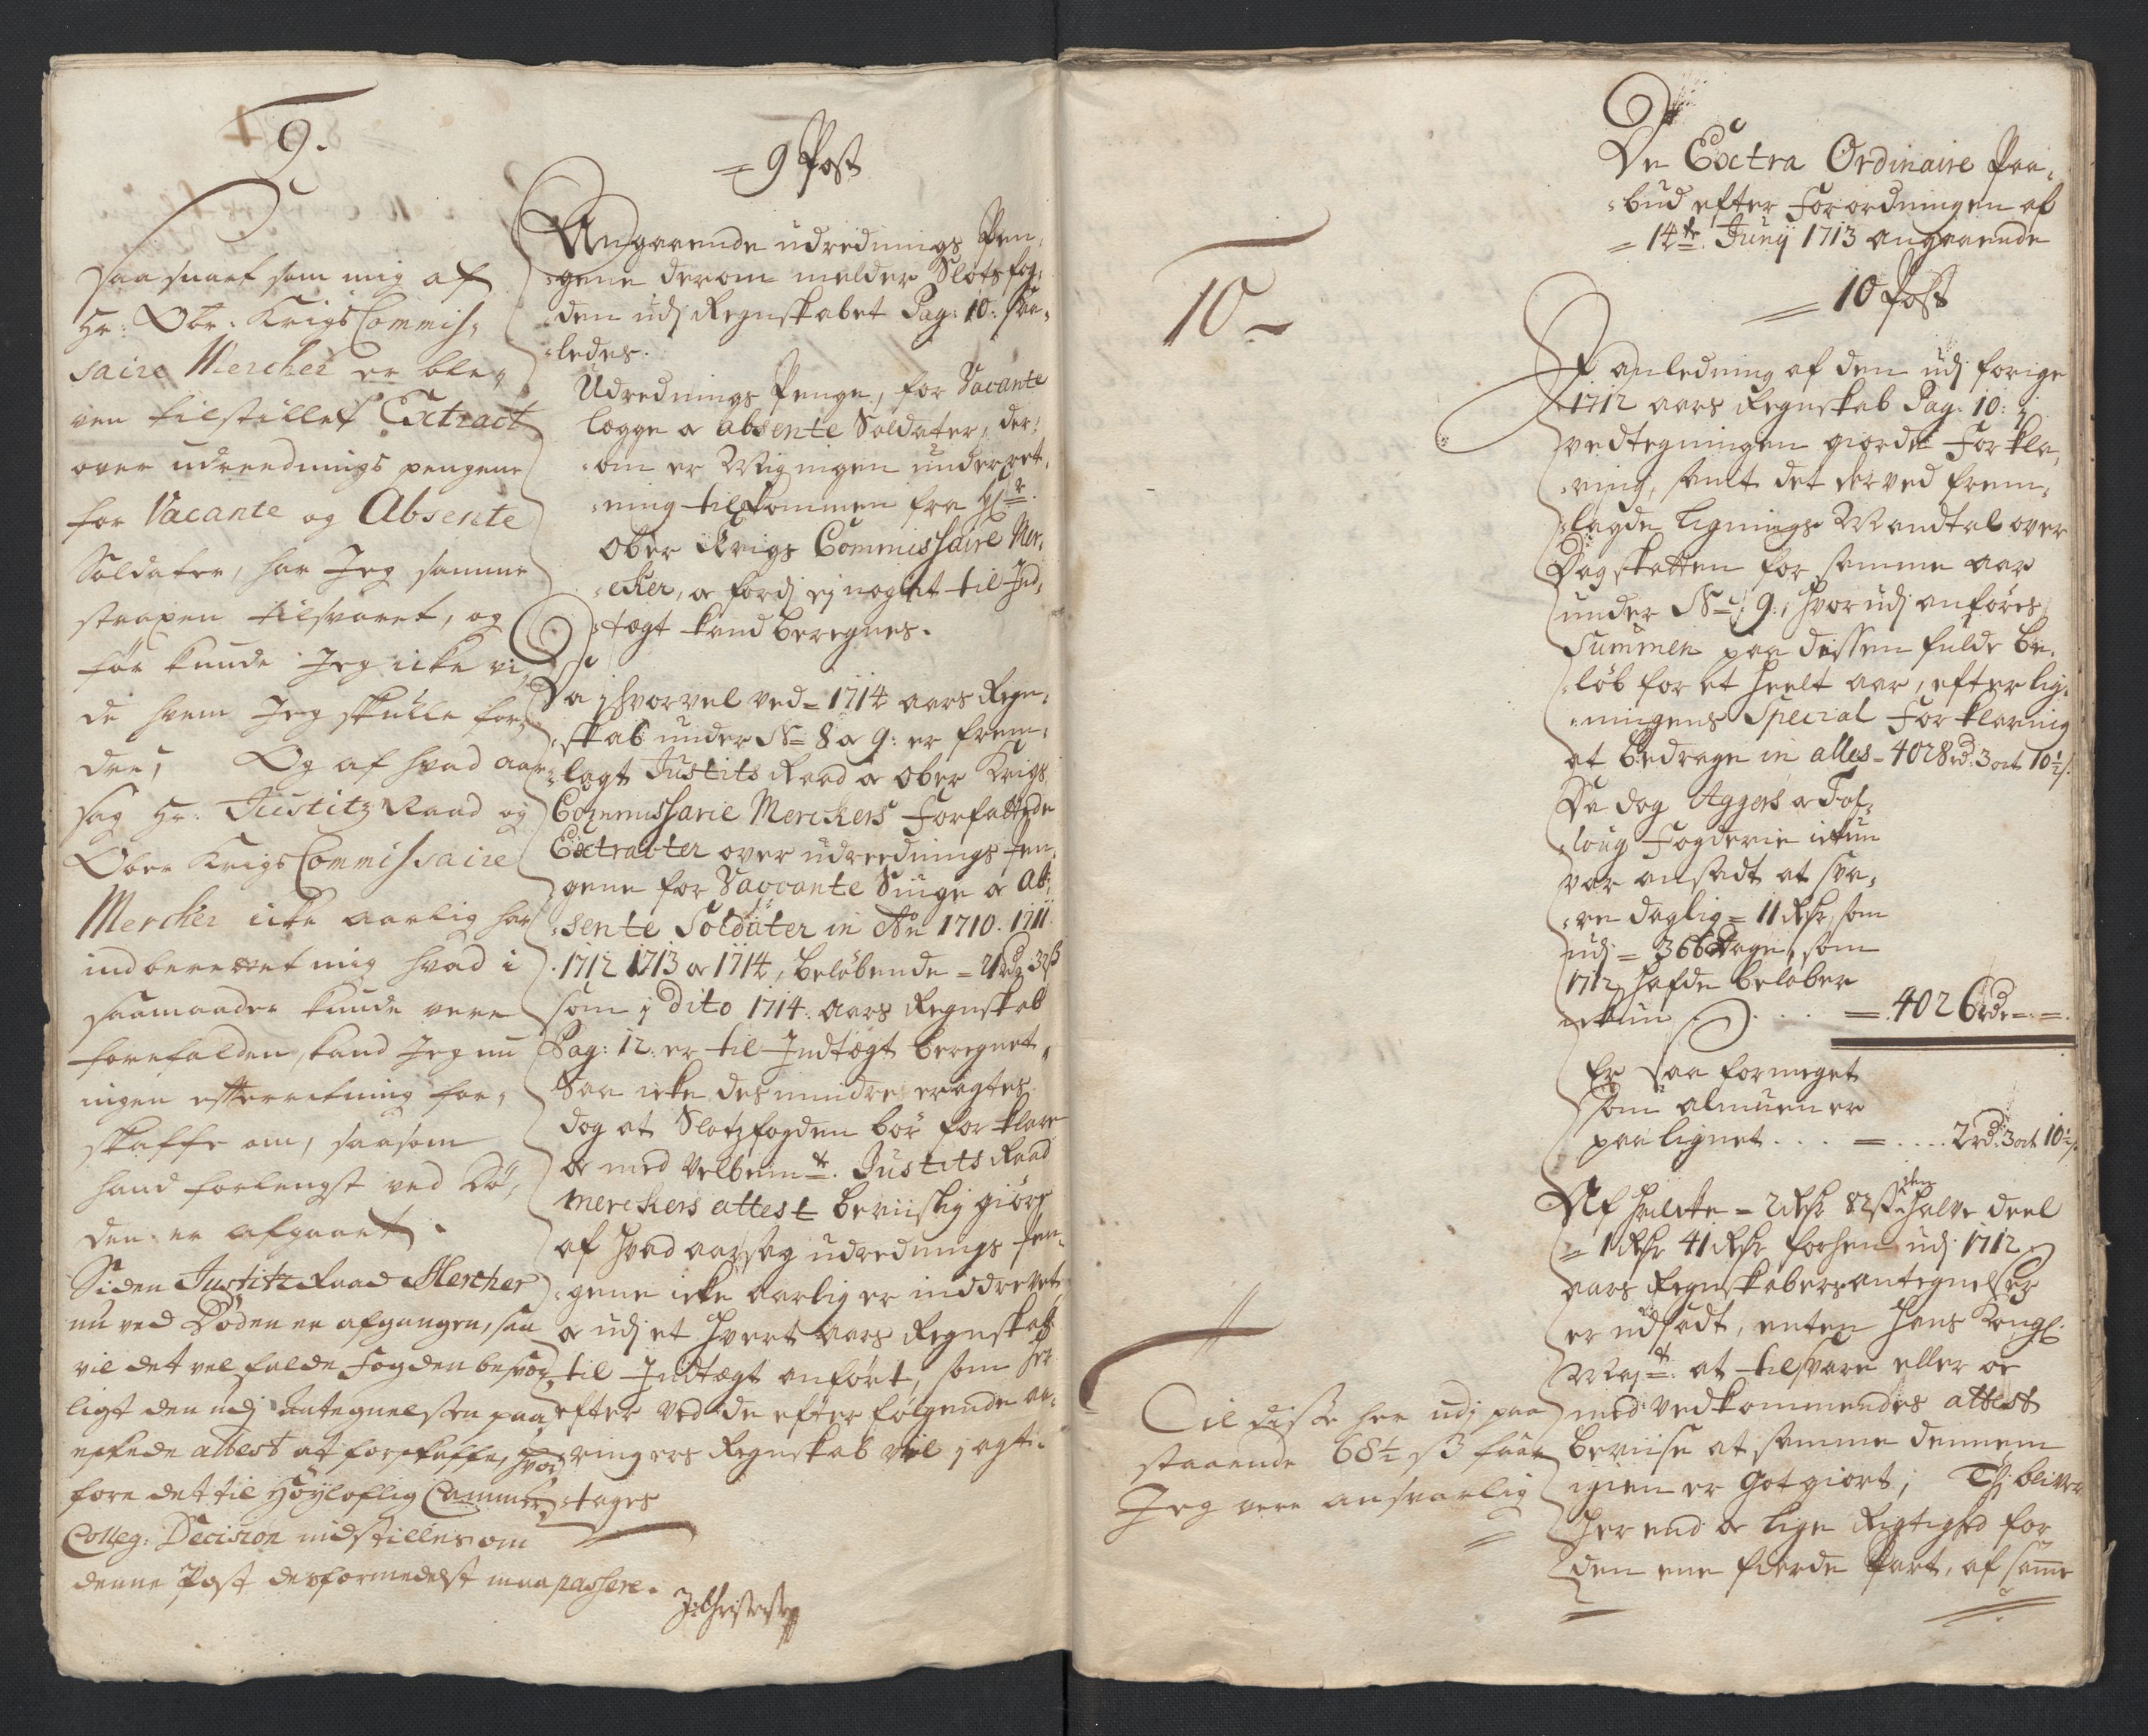 9.
Saa snart som mig af
Hr: Obr: Krigs Commis¸
saire Mercher er ble¸
ven tilstillet Extract
over udreednings pengene
for Vacante og Absente
Soldater, har Jeg samme
straxen tilsvaret, og
før kunde Jeg icke vi¸
de hvem Jeg skulle for¸
dre, Og af hvad aar¸
sag Hr: Justitz Raad og
Ober Krigs Commissaire
Mercher icke aarlig har
indberettet mig hvad i
saamaader kunde være
forefalden, kand Jeg nu
ingen efterretning for¸
skaffe om, saasom
hand forlengst ved Dø¸
den er afgaaet.
Siden Justitz Raad Mercher
nu ved Døden er afgangen, saa
vil det vel falde Fogden besvær
ligt den udj Antegnelsten paa
eskede attest at forskaffe, hvor
fore det til Høyloflig Cammer
Colleg: Decision nidstilles om
denne Post desformedelst maa passere.
= 9 Post
Angaaende udrednings Pen¸
gene derom melder Slotsfog¸
den udj Regnskabet Pag: 10: saa¸
ledes.
Udrednings Penge, for Vacante
Lægge og absente Soldater, der¸
om er Wigningen underret¸
ning tilkommen fra Hr.
Ober Krigs Commissaire Mer¸
cker, og fordj ej noget til Ind¸
tægt kand beregnes.
Da j hvorvel ved = 1714 aars Regn¸
skab under No 8 og 9: er frem¸
lagt Justits Raad og Ober Krigs
Commissarie Merckers Forfattede
Extracter over udreednings Pen¸
gene for Vaccante Siuge og Ab¸
sente Soldater in Ao 1710. 1711.
1712 1713 og 1714, beløbende = 21rd 32ß
som j dito 1714. aars Regnskab
Pag: 12: er til Indtægt beregnet,
Saa icke des mindre eragtes
dog at Slotzfogden bør forklare
og med Velbemte. Justits Raad
Merckers attest beviislig giøre
af hvad aarsag udrednings Pen¸
gene icke aarlig er inddrevet
og udj et hvert aars Regnskab
til Indtægt anført, som her
efter ved de efterfølgende aa¸
ringers Regnskab vil j agt¸
tages
J: Christensen
10
Til disse her udj paa
staaende 68½ ß faar
Jeg være ansvarlig
De Extra Ordinaire Paa¸
bud efter Forordningen af
= 14de. Junij 1713 angaaende
= 10 Post
I anledning af den udj forige
1712 aars Regnskab Pag: 10: j
vedtegningen giorde Forkla¸
ring, samt det derved frem¸
lagde Lignings Mandtal over
Dagskatten for samme aar
under No 9., hvorudj anføres
Summen paa dessen fulde be¸
løb for et heelt aar, efter lig¸
ningens Special Forklaring
at bedrage in alles = 4028rd: 3ort 10½ß.
Da dog Aggers og Fol¸
loug Fogderie ickun
var ansadt at sva¸
re daglig = 11 Rdr, som
udj = 366 Dage, som
1712 hafde beløber
ickun . . . . = 4026rdr = . = .
Er saa formeget
som almuen er
paalignet . . . . = . . . . 2rd: 3ort 10½ß.
Af hvilcke = 2 Rdr 82ß den halve deel
= 1 Rdr 41 Rdr forhen udj 1712
aars Regnskabers antegnelser
er udsadt, enten Hans Kongl.
Mayt. at tilsvare eller og
med vedkommendes attest
beviise at samme dennem
igien er Gotgiort; Thj bliver
her end og lige Rigtighed for
den ene fierde Part, af samme